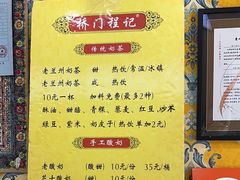 桥门程记
传统奶茶
老兰州奶茶 甜 热饮/常温/冰镇
老兰州奶茶 咸 热饮
10元一杯 加料免费(最多2种)
酥油、甜醅、青稞、葛麦、红豆、炒米
绿豆、紫米、奶皮子(热饮单加2元)
手工酸奶
老酸奶 (酸甜) 10元/份 35元/桶
(酸甜) 10元/份